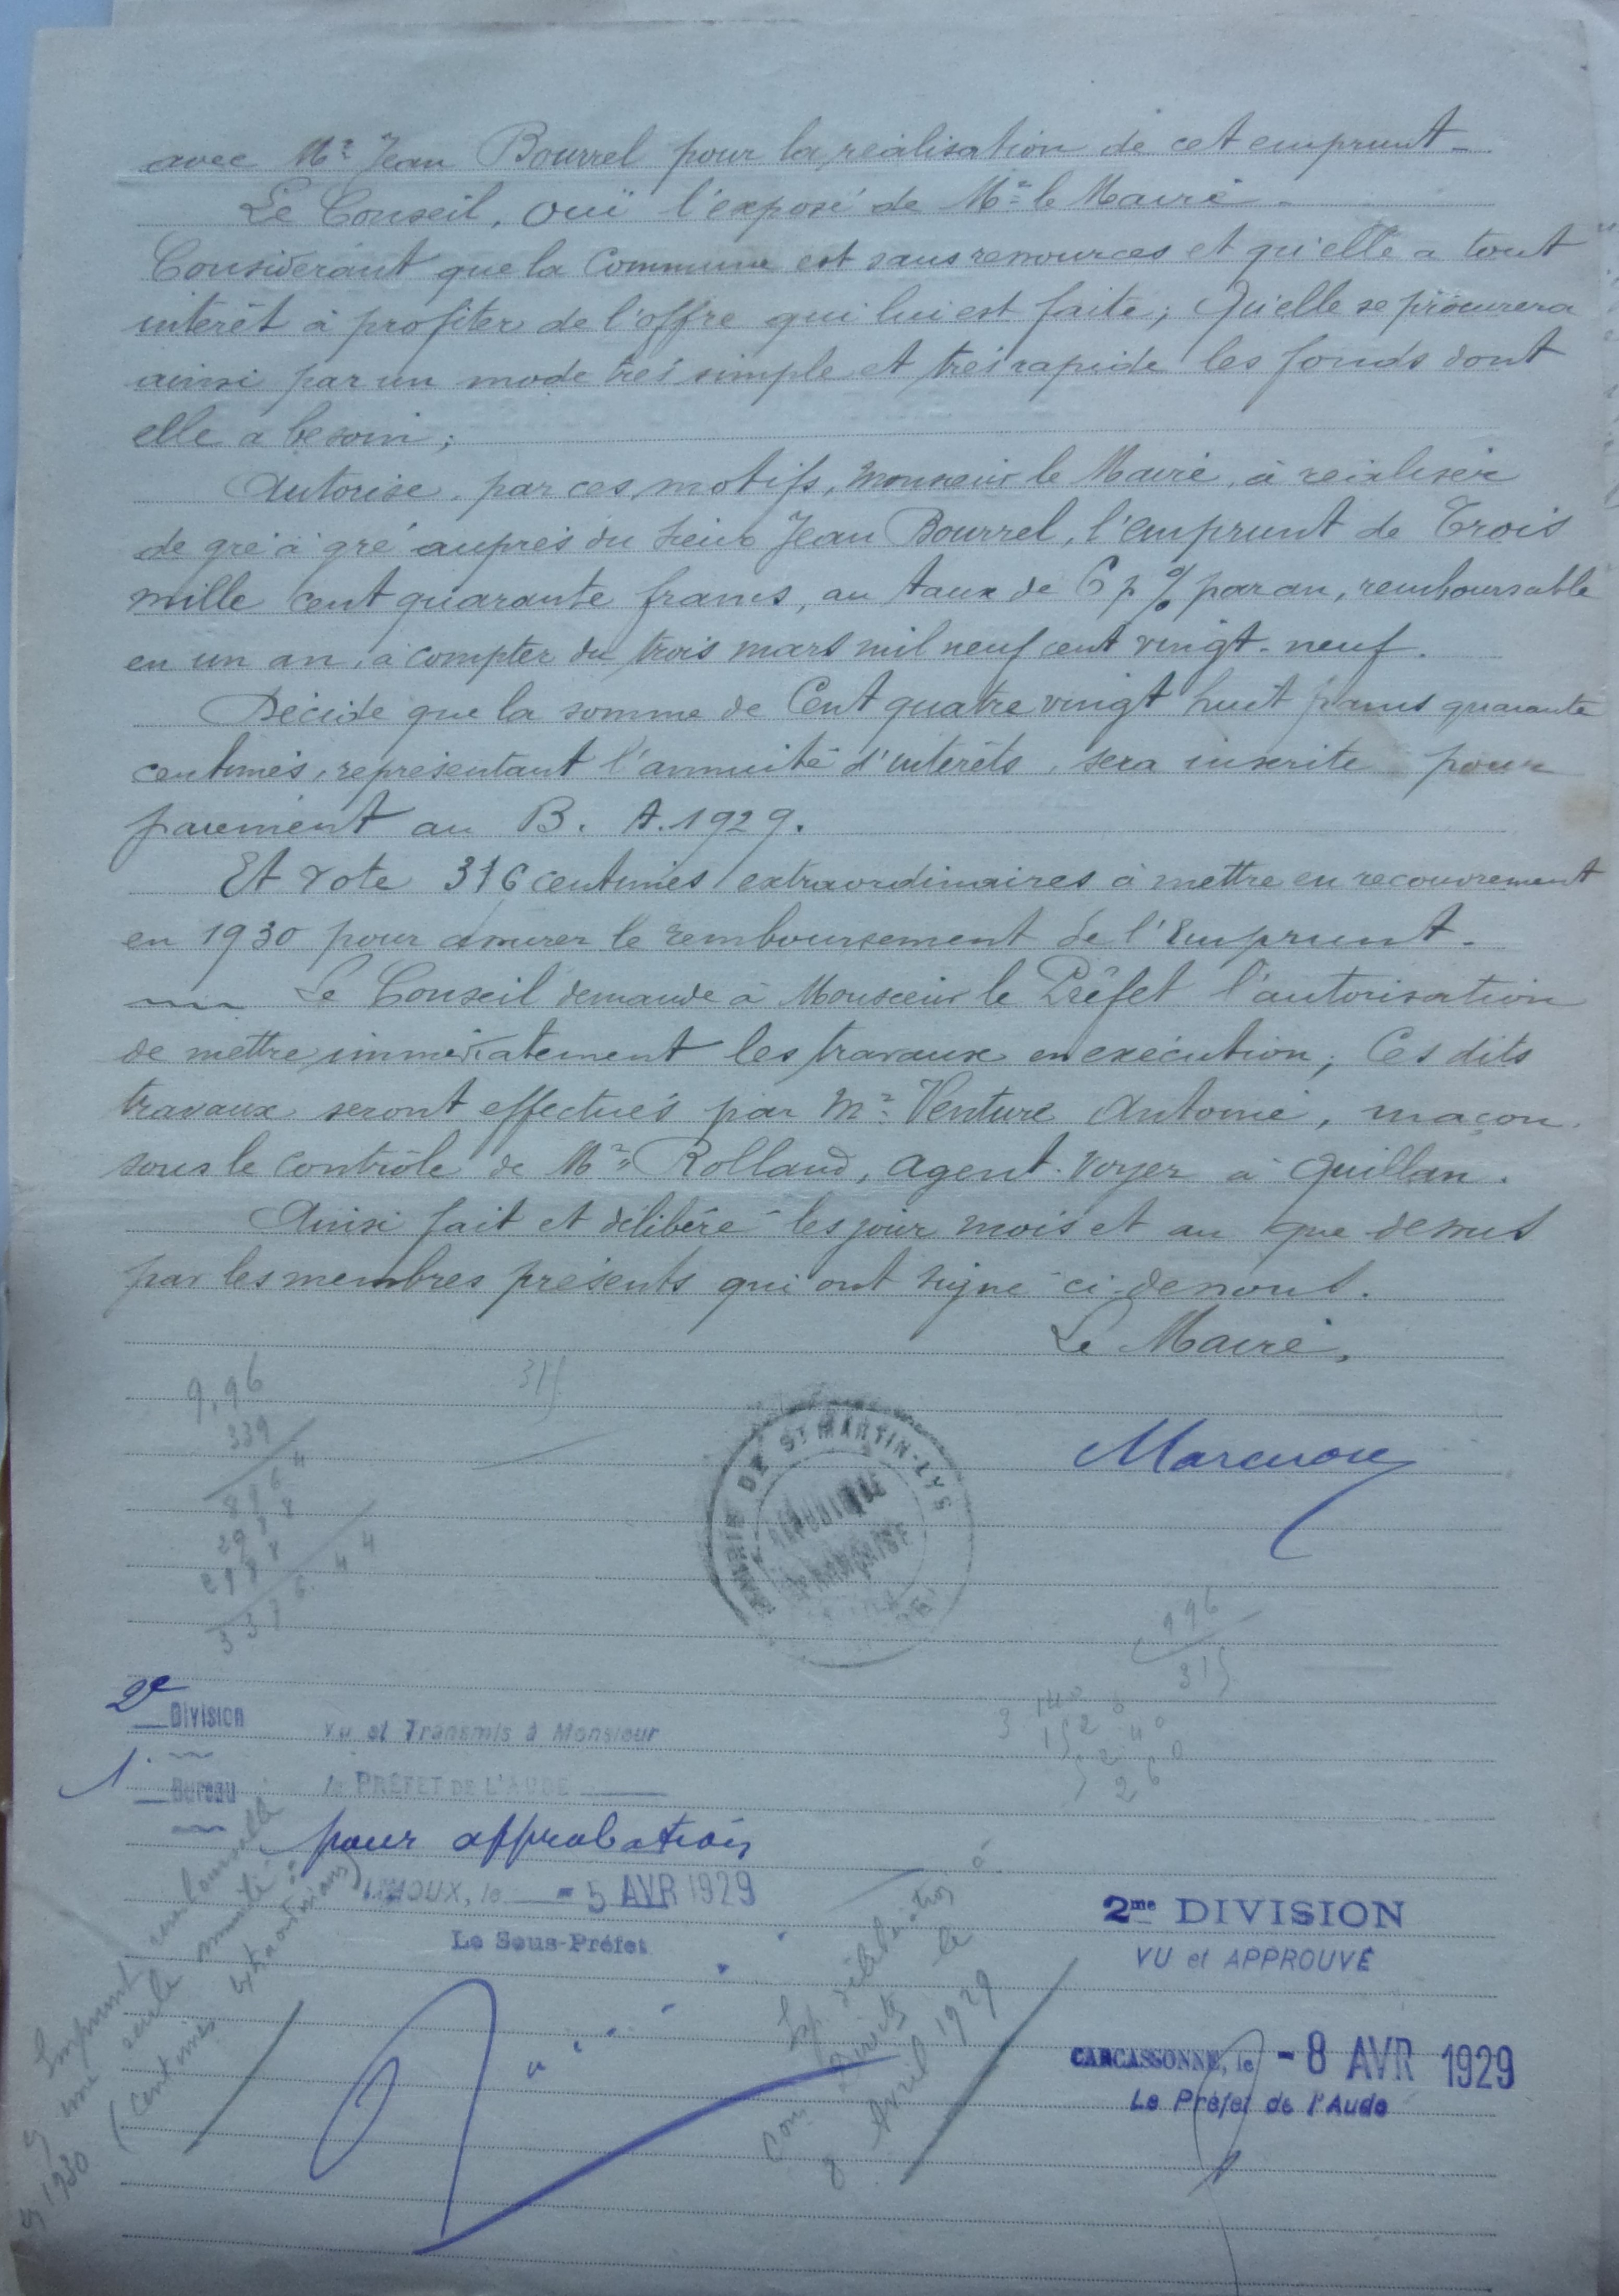 avec Mr Jean Bourrel pour la réalisation de cet emprunt -
Le Conseil, ouï l'exposé de Mr le Maire -
Considérant que la Commune est sans ressources et qu'elle a tout
intérêt à profiter de l'offre qui lui est faite; Qu'elle se procurera
ainsi par un mode très simple et très rapide les fonds dont
elle a besoin;
Autorise, par ces motifs, Monsieur le Maire, à réaliser
de gré à gré auprès du sieur Jean Bourrel, l'emprunt de Trois
mille cent quarante francs, au taux de 6 p % par an, remboursable
en un an, à compter du trois mars mil neuf cent vingt-neuf.
Décide que la somme de Cent quatre vingt huit francs quarante
centimes, représentant l'annuité d'intérêts, sera inscrite pour
paiement au B. A. 1929.
Et vote 316 centimes extraordinaires à mettre en recouvrement
en 1930 pour assurer le remboursement de l'Emprunt -
Le Conseil demande à Monsieur le Préfet l'autorisation
de mettre immédiatement les travaux en exécution; Ces dits
travaux seront effectués par Mr Venture Antoine, maçon
sous le contrôle de Mr Rolland, Agent-Voyer à Quillan.
Ainsi fait et délibéré les jour mois et an que dessus
par les membres présents qui ont signé ci-dessous.
Le Maire,
9,96
339
8964
2988
2988
3376.44
MAIRIE DE ST MARTIN-LYS
RÉPUBLIQUE
FRANÇAISE
996
315
3140
2e Division
1. Bureau
Vu et Transmis à Monsieur
le PRÉFET DE L'AUDE
pour approbation
LIMOUX, le - 5 AVR 1929
Le Sous-Préfet
Emprunt remboursable
en une seule annuité
en 1930 (centimes extraordinaires)
délibération à
8 Avril 1929
2me DIVISION
VU et APPROUVÉ
CARCASSONNE, le - 8 AVR 1929
Le Préfet de l'Aude